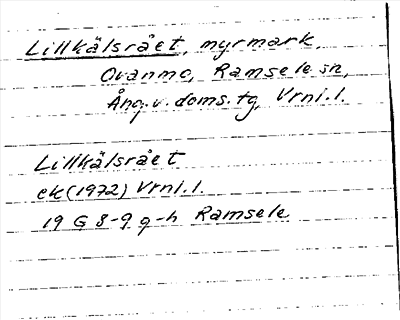 Lillkälsrået, myrmark,
Ovanmo, Ramsele sn,
Ång. v. doms. tg, Vrnl. l.
Lillkälsrået
ek (1972) Vrnl. l.
19 G 8-9 g-h Ramsele